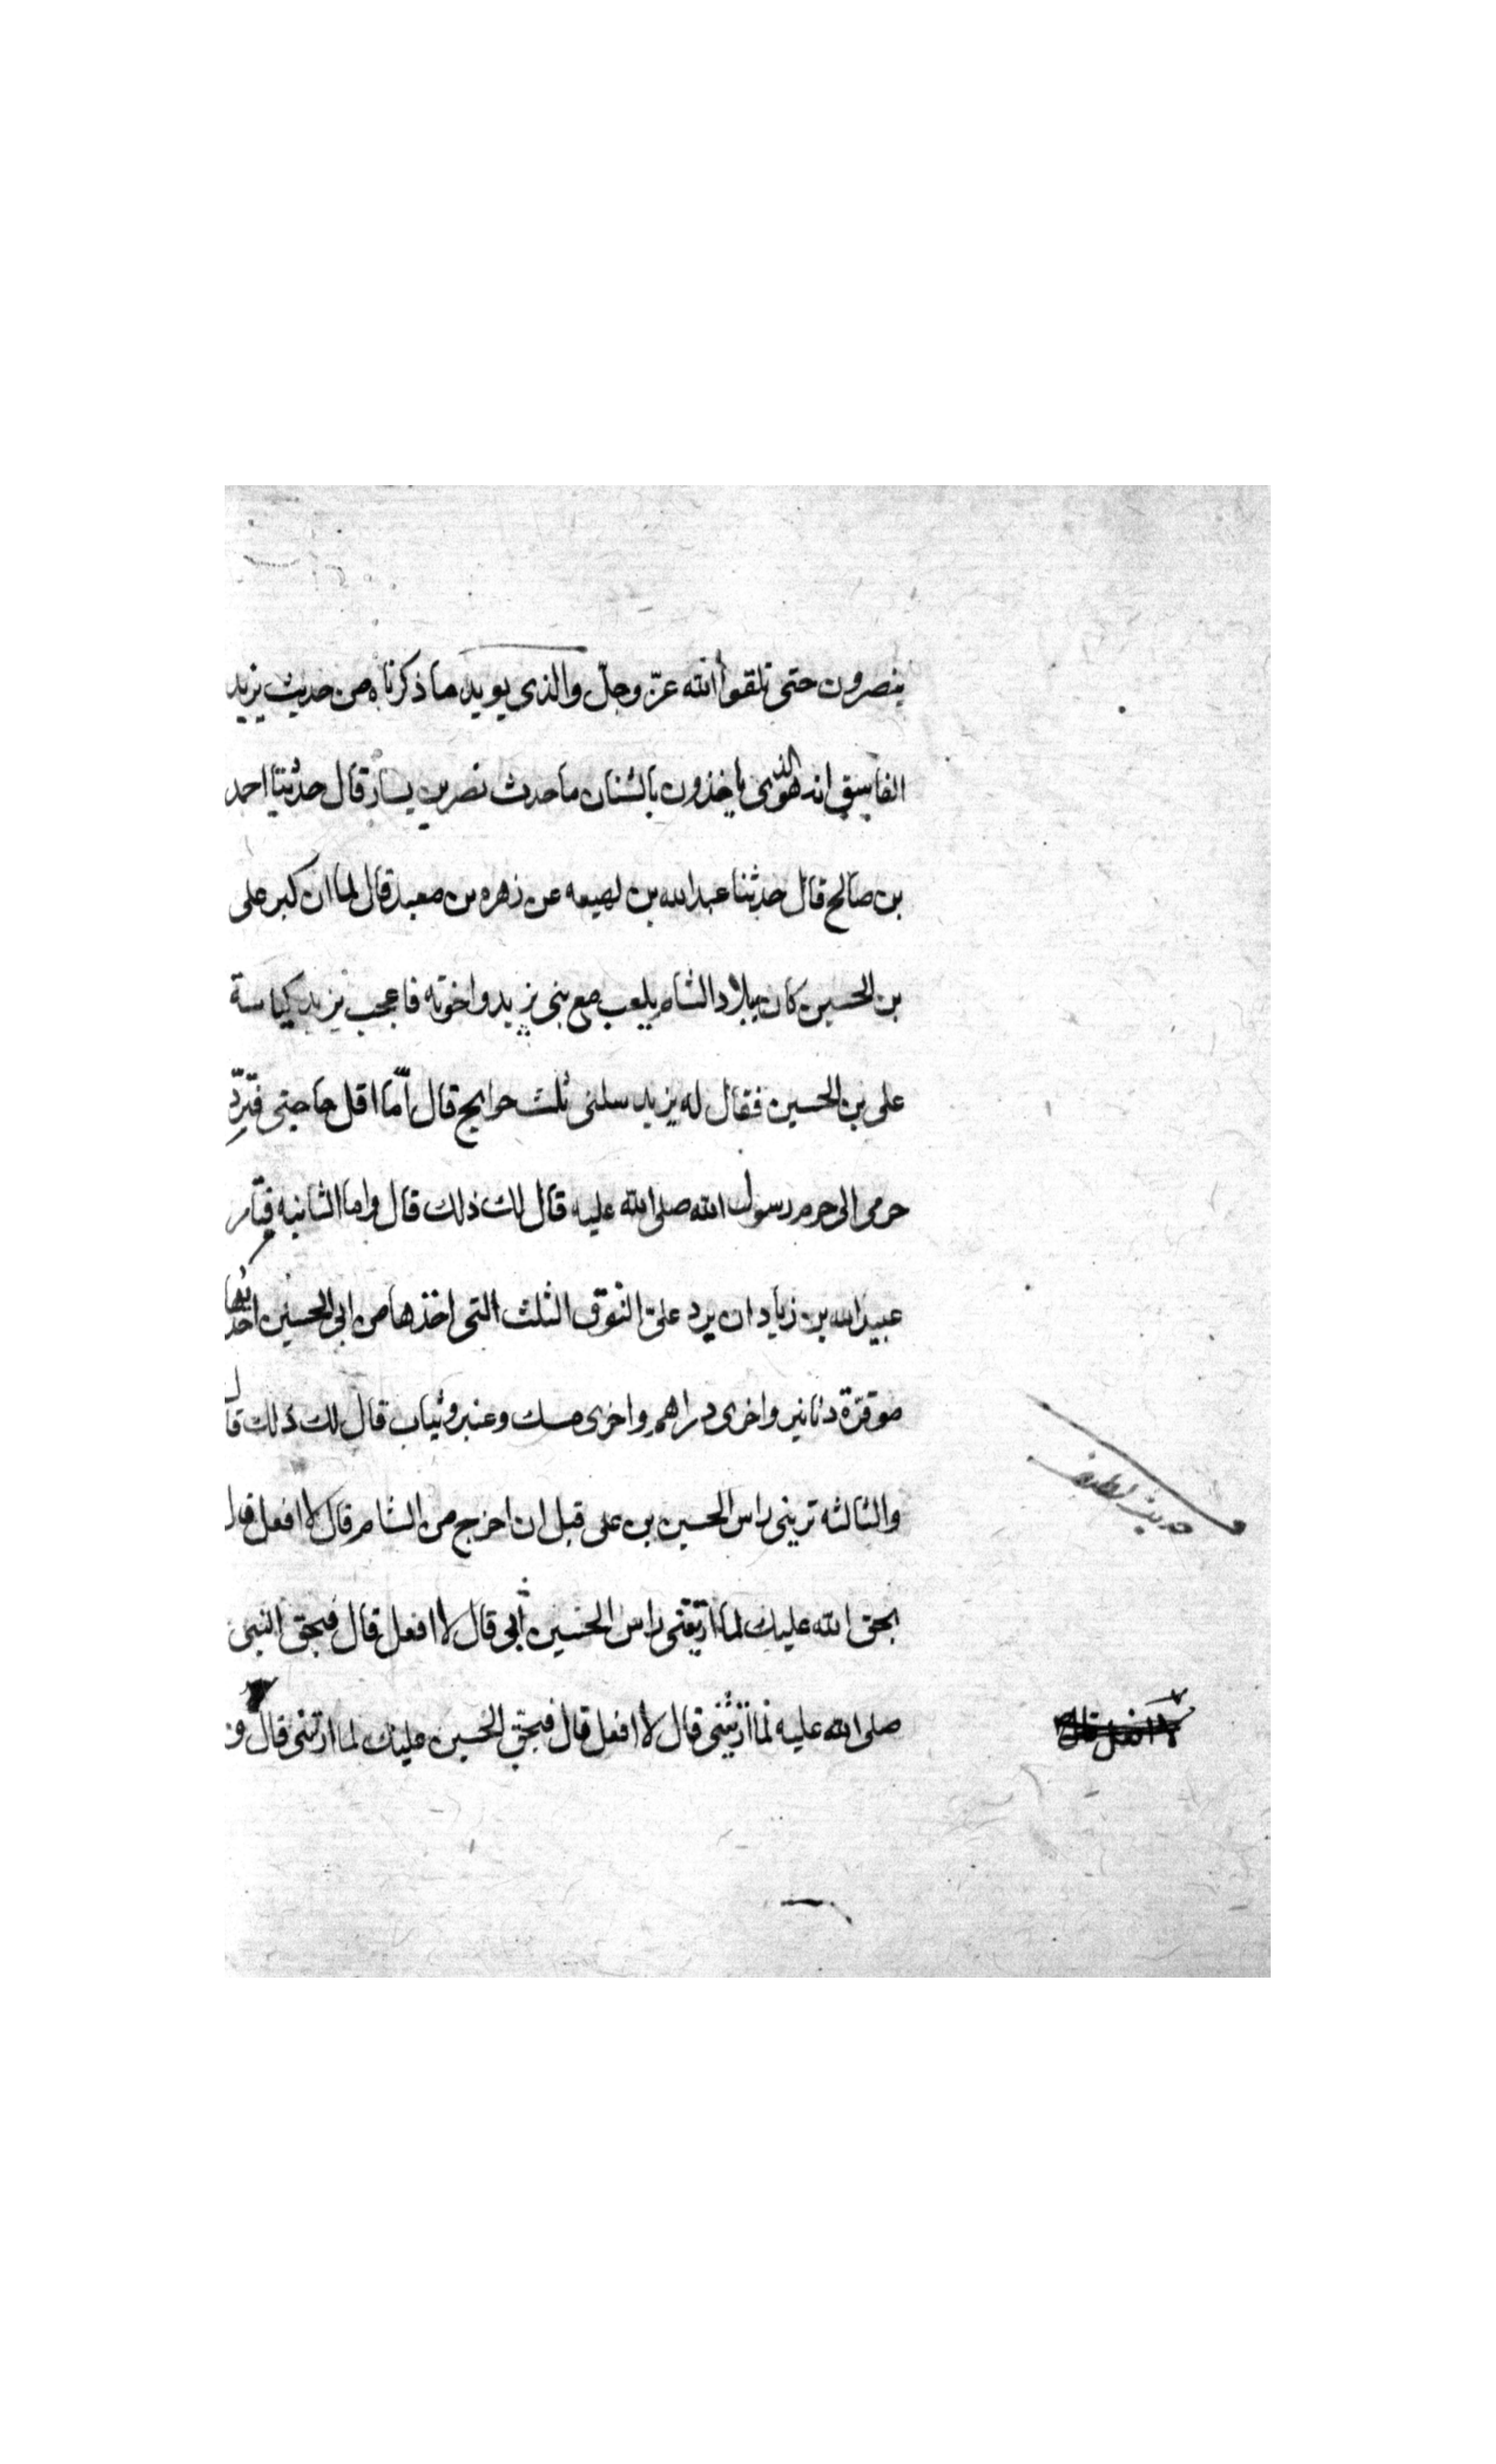 ينصرون حتى تلقوا الله عزّ وجلّ والذى يويد ما ذكرناه من حديث يزيد
الفاسق انه هو الذى ياخذون بالشنان ما حدث نصر بن يسار قال حدثنا احمد
بن صالح قال حدثنا عبد الله بن لهيعه عن زهره بن معبد قال لما ان كبر على
بن الحسين كان ببلاد الشام يلعب مع بنى يزيد واخوته فاعجب يزيد كياسة
على بن الحسين فقال له يزيد سلنى ثلث حوايج قال أمّا اقل حاجتى فتردّ
حرمى الى حرم رسول الله صلى الله عليه قال لك ذلك قال واما الثانيه فتامر
عبيد الله بن زياد ان يرد علىّ النوق الثلث التى اخذها من ابى الحسين احدىها
موقرة دنانير واخرى دراهم واخرى مسك وعنبر وثياب قال لك ذلك قال
والثالثه ترينى راس الحسين بن على قبل ان اخرج من الشام قال لا افعل قال
بحق الله عليك لما اريتنى راس الحسين ابى قال لا افعل قال فبحق النبى
صلى الله عليه لما اريتنى قال لا افعل قال فبحق الحسين عليك لما اريتنى قال و
لا افعل قال